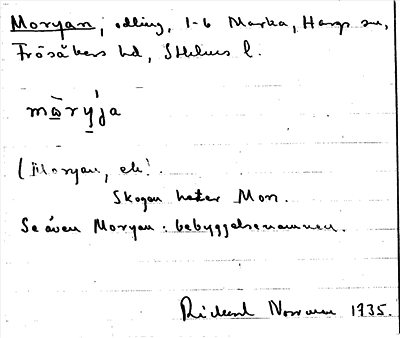 Moryan, odling, 1-6 Marka, Hargs sn,
Frösåkers hd, Sthlms l.
mɷ̀rý̱ja
(Moryan, ek).
Skogen heter Mon.
Se även Moryan : bebyggelsenamnen.
Rickard Norman 1935.